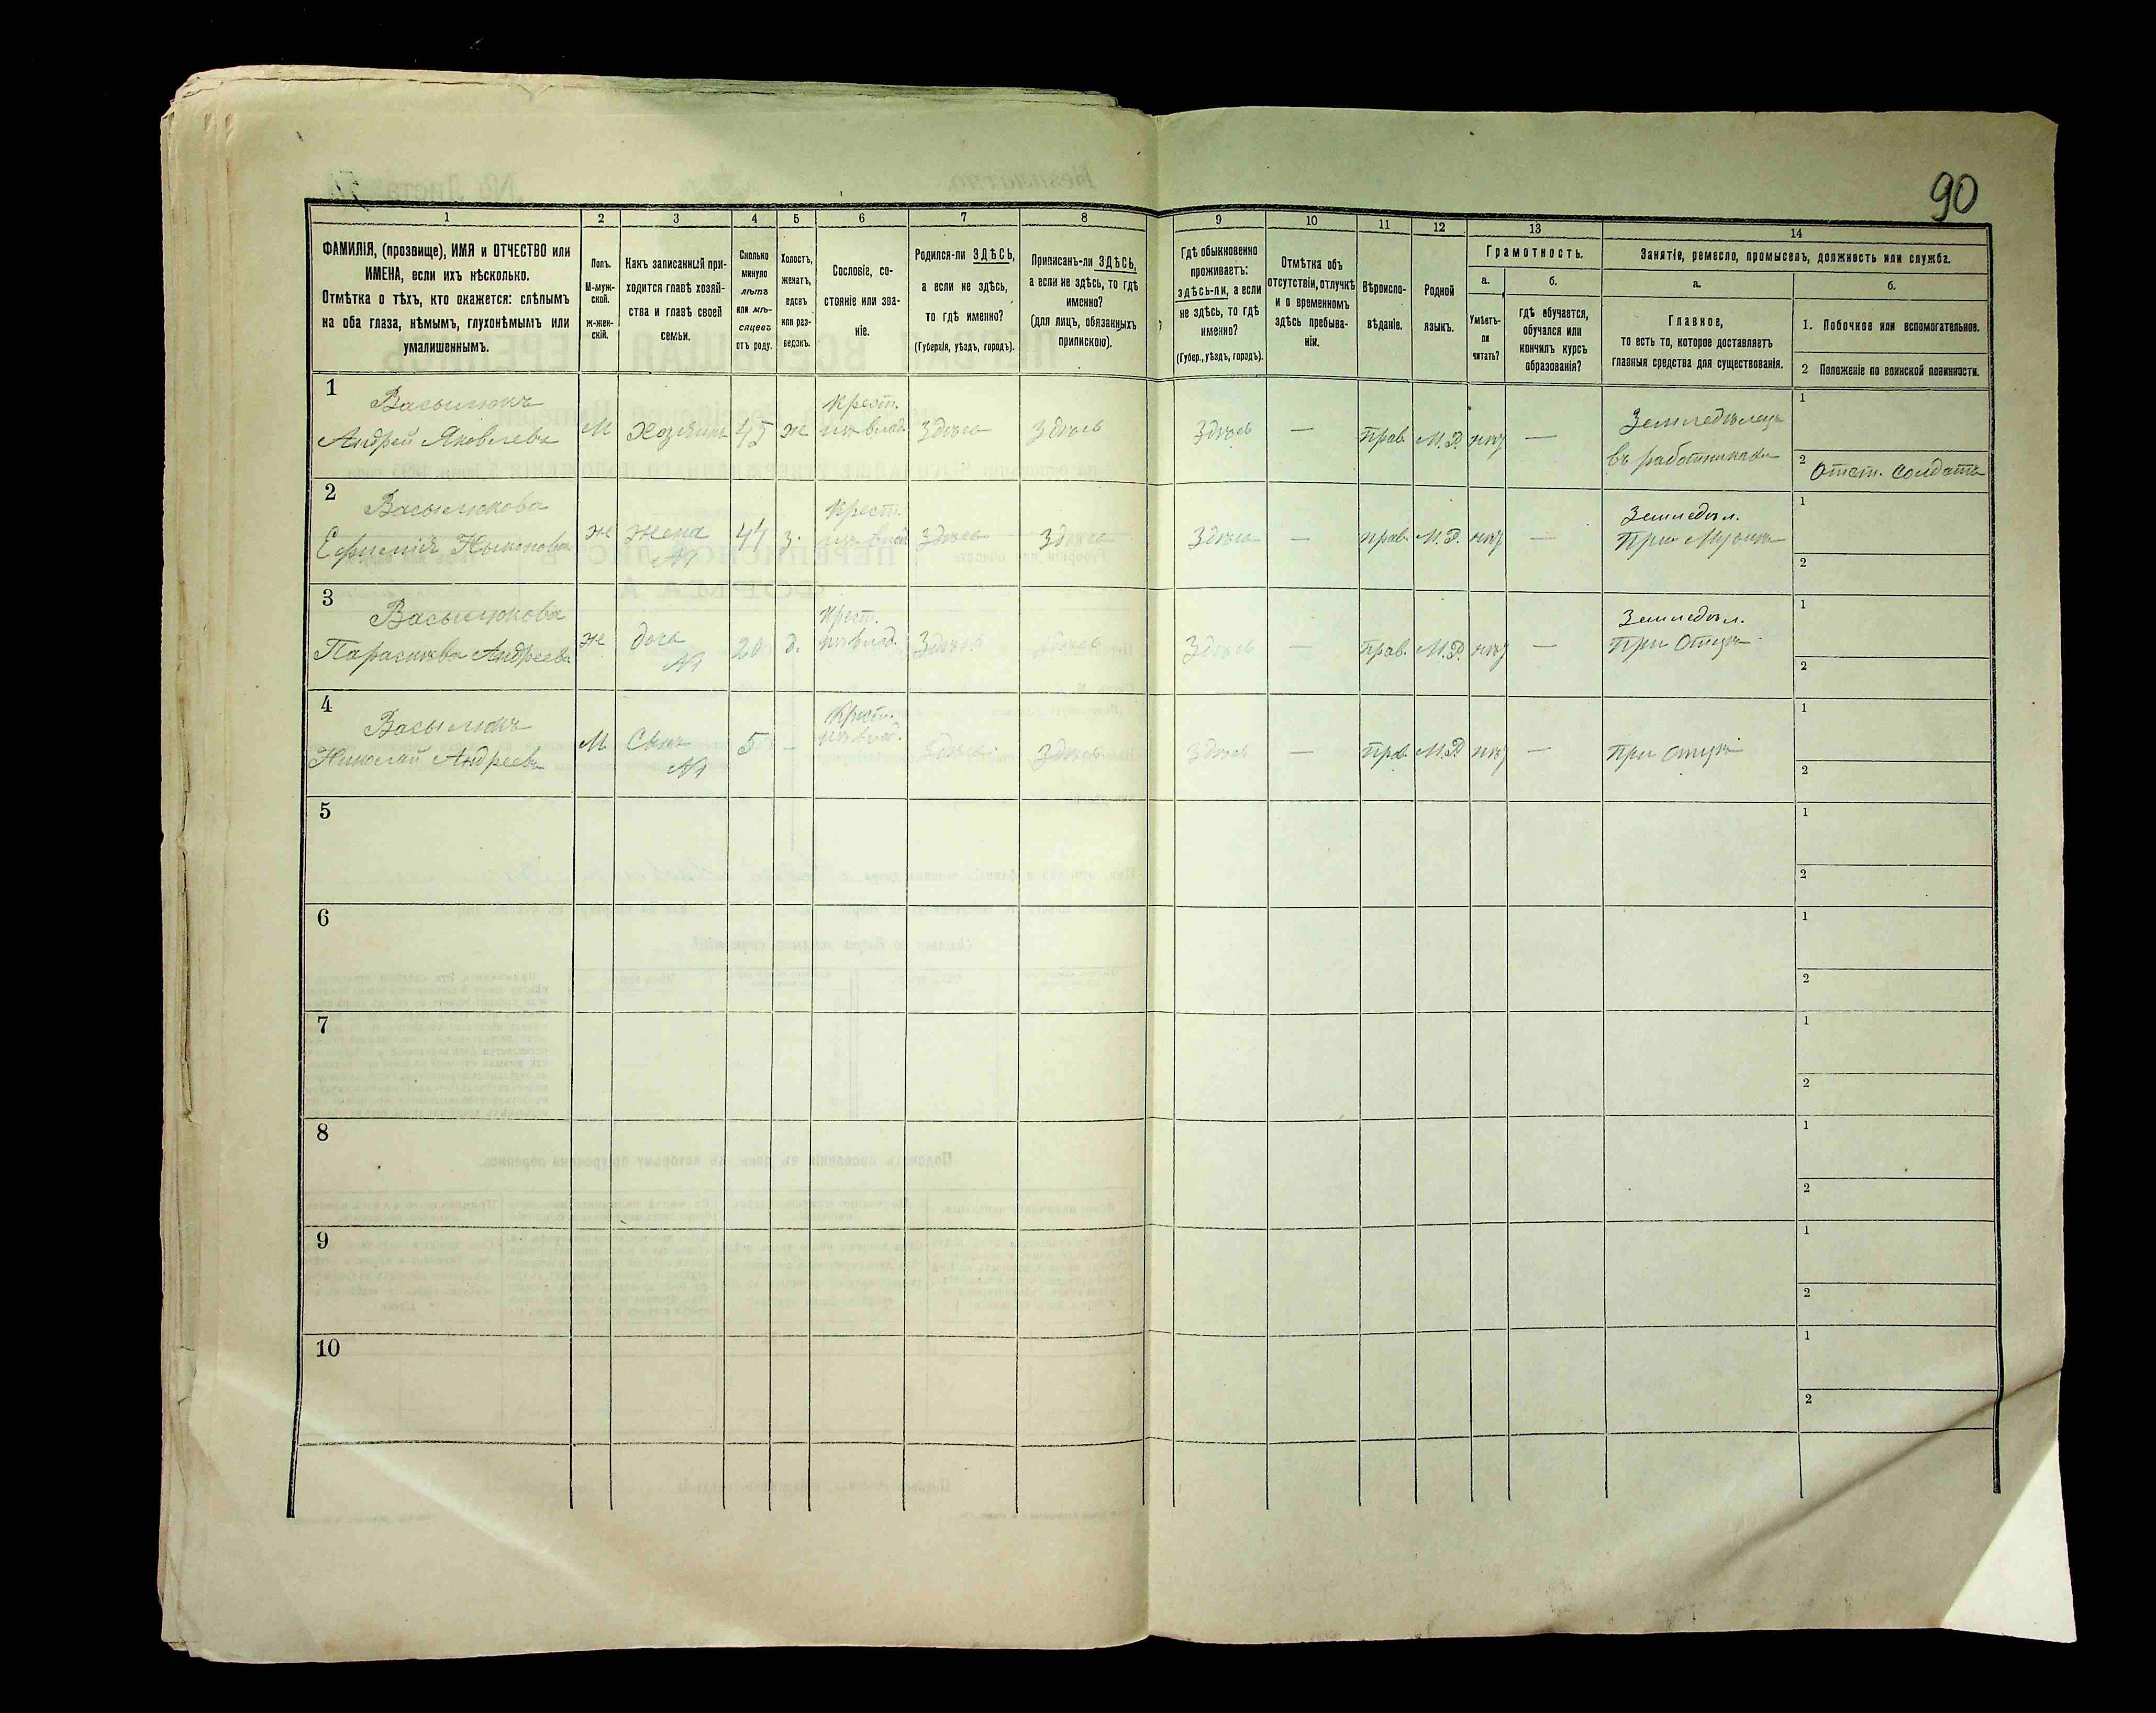 90
1 2 3 4 5 6 7 8 9 10 11 12 13 14
ФАМИЛІЯ, (прозвище), ИМЯ и ОТЧЕСТВО или
ИМЕНА, если ихъ нѣсколько.
Отмѣтка о тѣхъ, кто окажется: слѣпымъ
на оба глаза, нѣмымъ, глухонѣмымъ или
умалишеннымъ.
Полъ.
М-муж-
ской.
ж-жен-
скій.
Какъ записанный при-
ходится главѣ хозяй-
ства и главѣ своей
семьи.
Сколько
минуло
лѣтъ
или мѣ-
сяцевъ
отъ роду.
Холостъ,
женатъ,
вдовъ
или раз-
веденъ.
Сословіе, со-
стояніе или зва-
ніе.
Родился-ли ЗДѢСЬ,
а если не здѣсь,
то гдѣ именно?
(Губернія, уѣздъ, городъ).
Приписанъ-ли ЗДѢСЬ,
а если не здѣсь, то гдѣ
именно?
(для лицъ, обязанныхъ
припискою).
Гдѣ обыкновенно
проживаетъ:
здѣсь-ли, а если
не здѣсь, то гдѣ
именно?
(Губер., уѣздъ, городъ).
Отмѣтка объ
отсутствіи, отлучкѣ
и о временномъ
здѣсь пребыва-
ніи.
Вѣроиспо-
вѣданіе.
Родной
языкъ.
Грамотность.
а.
Умѣетъ-
ли
читать?
б.
гдѣ обучается,
обучался или
кончилъ курсъ
образованія?
Занятіе, ремесло, промыселъ, должность или служба.
а.
Главное,
то есть то, которое доставляетъ
главныя средства для существованія.
б.
1. Побочное или вспомогательное.
2 Положеніе по воинской повинности.
1
Васылюкъ Крест. Земледѣлецъ 1
Андрей Яковлевъ М Хозяинъ 45 ж изъ влад. Здѣсь Здѣсь Здѣсь — прав. М.Р. нѣтъ —
въ работникахъ 2 Отст. солдатъ
2
Васылюкова Крест. Земледѣл. 1
Ефимія ж жена 44 з. изъ влад. Здѣсь Здѣсь Здѣсь — прав. М.Р. нѣтъ — При мужѣ
№1 2
3
Васылюкова Крест. Земледѣл. 1
Параскева Андреева ж дочь 20 д. изъ влад. Здѣсь Здѣсь Здѣсь — прав. М.Р. нѣтъ — При отцѣ
№1 2
4
Васылюкъ Крест. 1
Николай Андреевъ М Сынъ 5 - изъ влад. Здѣсь Здѣсь Здѣсь — прав. М.Р. нѣтъ — При отцѣ
№1 2
5 1
2
6 1
2
7 1
2
8 1
2
9 1
2
10 1
2